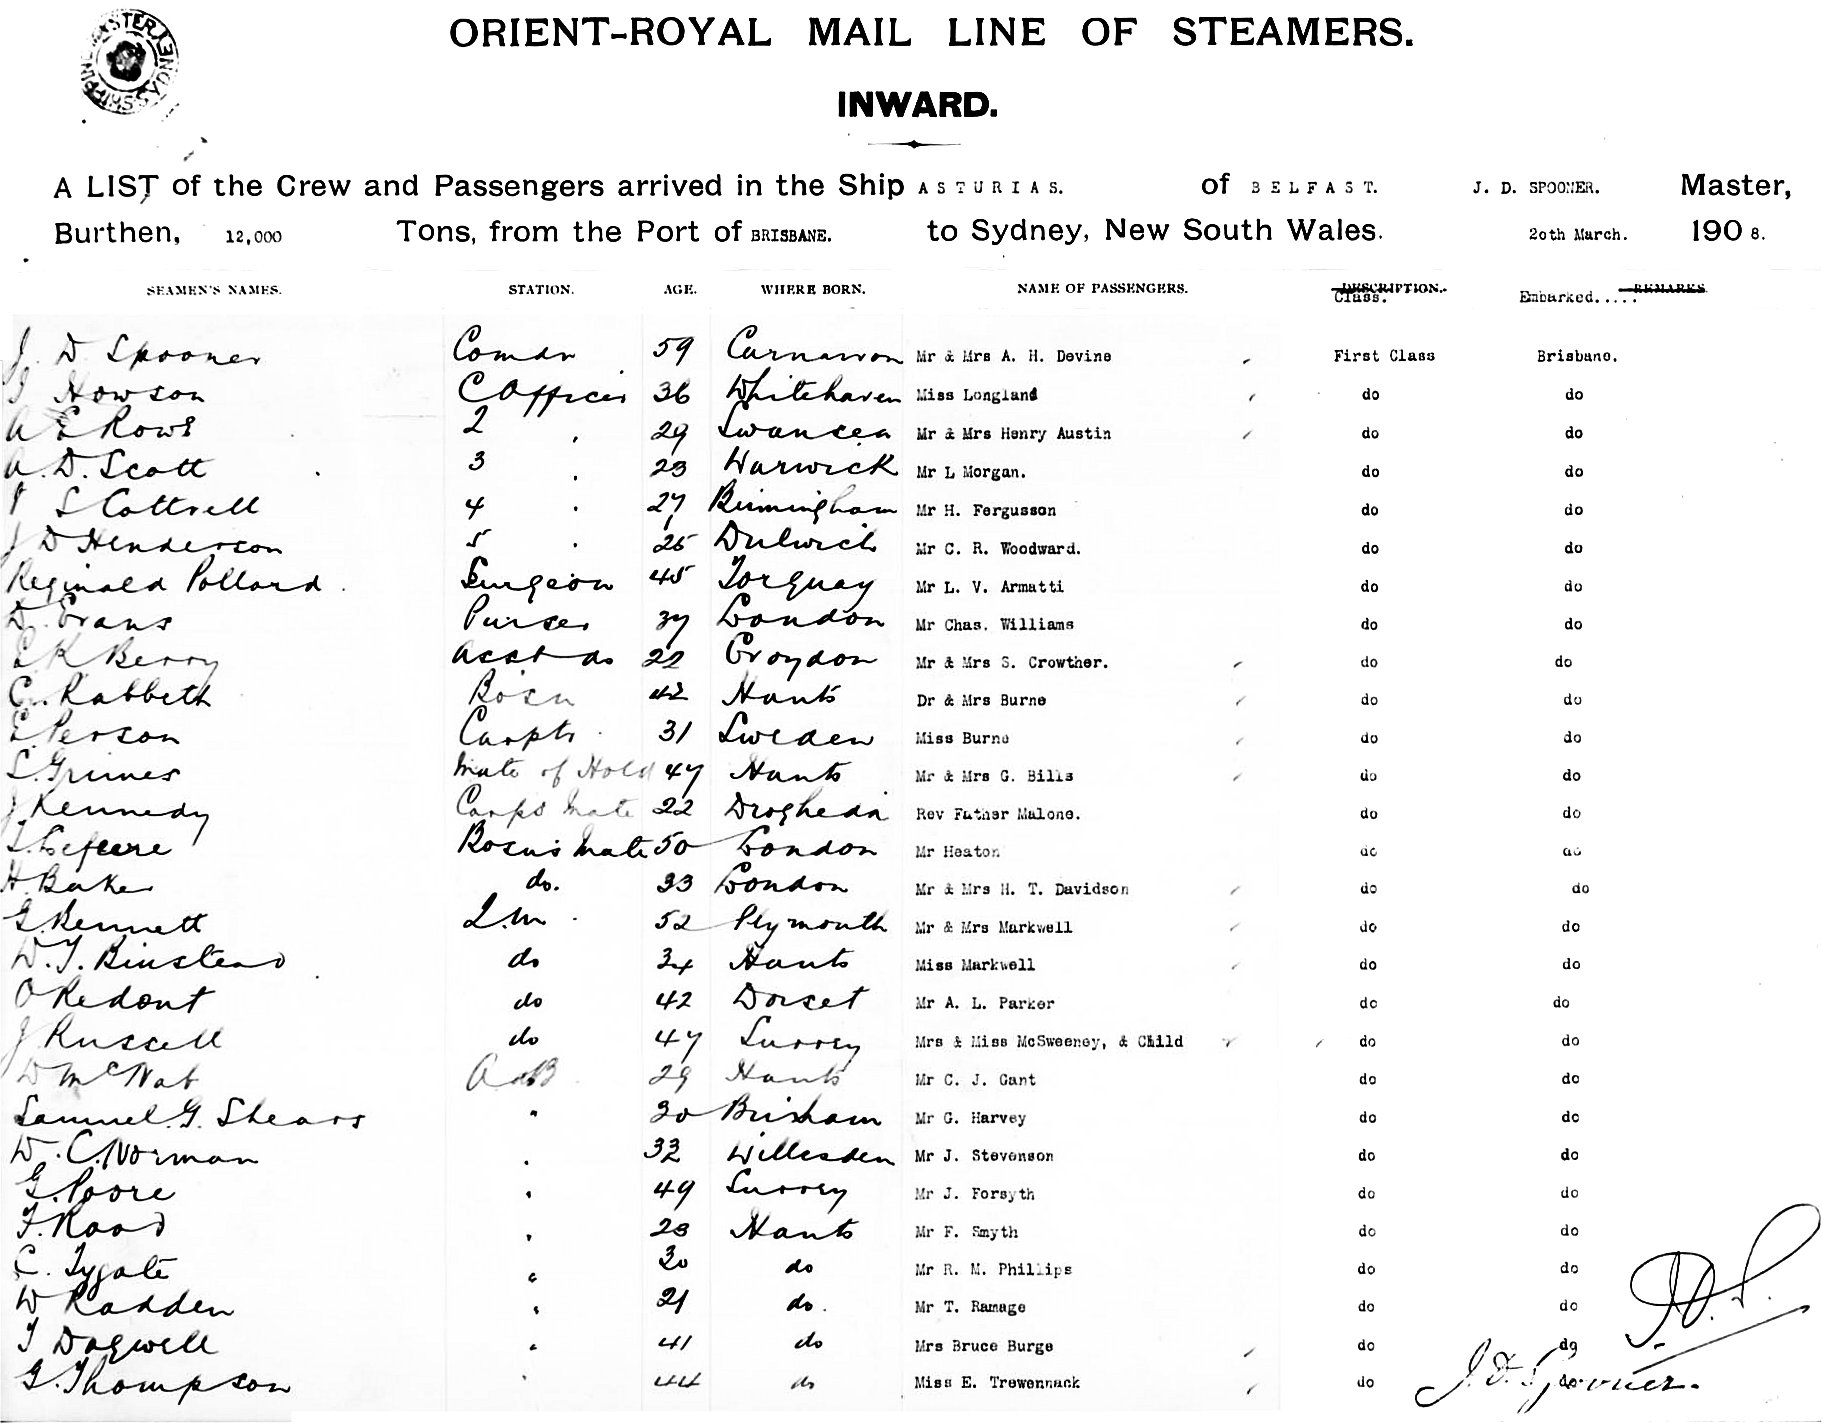 ORIENT-ROYAL MAIL LINE OF STEAMERS.
INWARD.
A LIST of the Crew and Passengers arrived in the Ship ASTURIAS. of BELFAST. J. D. SPOONER. Master,
Burthen, 12,000 Tons, from the Port of BRISBANE. to Sydney, New South Wales. 20th March. 190 8.
SEAMEN'S NAMES. STATION. AGE. WHERE BORN. NAME OF PASSENGERS. DESCRIPTION. REMARKS
Class. Embarked.....
J. D Spooner Comdr 59 Carnarvon Mr & Mrs A. H. Devine First Class Brisbane.
Howson C Officer 36 Whitehaven Miss Longland do do
A E Rows 2 29 Swansea Mr & Mrs Henry Austin do do
A. D. Scott 3 23 Warwick Mr L Morgan. do do
S Cottrell 4 27 Birmingham Mr H. Fergusson do do
J D Henderson 5 25 Dulwich Mr C. R. Woodward. do do
Reginald Pollard Surgeon 45 Torquay Mr L. V. Armatti do do
D. Evans Purser 37 London Mr Chas. Williams do do
E K Berry Asst do 22 Croydon Mr & Mrs S. Crowther. do do
G. Rabbeth Bosn 42 Hants Dr & Mrs Burne do do
E. Person Carptr 31 Sweden Miss Burne do do
S. Grimes Mate of Hold 47 Hants Mr & Mrs G. Bills do do
J Kennedy Carps Mate 22 Drogheda Rev Father Malone. do do
Lefeere Bosuns Mate 50 London Mr Heaton do do
H. Baker do. 33 London Mr & Mrs H. T. Davidson do do
G. Bennett Q.M 52 Plymouth Mr & Mrs Markwell do do
W. J. Binstead do 34 Hants Miss Markwell do do
O Redout do 42 Dorset Mr A. L. Parker do do
J Russell do 47 Surrey Mrs & Miss McSweeney, & Child do do
D McNab A B 29 Hants Mr C. J. Gant do do
Samuel. G. Shears " 30 Brixham Mr G. Harvey do do
W. C. Norman 32 Willesden Mr J. Stevenson do do
G. Poore 49 Surrey Mr J. Forsyth do do
F. Rood 23 Hants Mr F. Smyth do do
C. Tygate 30 do Mr R. M. Phillips do do
W Radden 21 do. Mr T. Ramage do do
T Dagwell 41 do Mrs Bruce Burge do do
G. Thompson 44 do Miss E. Trewennack do do
J. D. S.
J. D. Spooner.